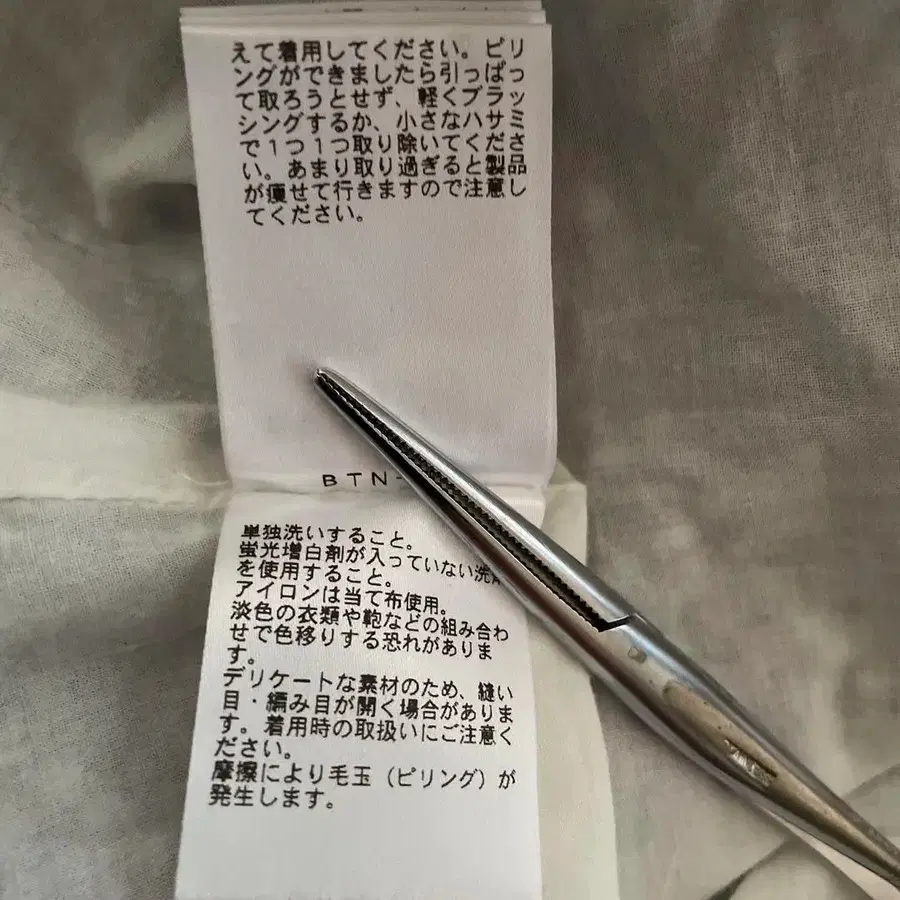 えて着用してください。ピリ
ングができましたら引っぱっ
て取ろうとせず、軽くブラッ
シングするか、小さなハサミ
で1つ1つ取り除いてくださ
い。あまり取り過ぎると製品
が痩せて行きますので注意し
てください。
BTN-
単独洗いすること。
蛍光増白剤が入っていない洗剤
を使用すること。
アイロンは当て布使用。
淡色の衣類や鞄などの組み合わ
せで色移りする恐れがありま
す。
デリケートな素材のため、縫い
目・編み目が開く場合がありま
す。着用時の取扱いにご注意く
ださい。
摩擦により毛玉（ピリング）が
発生します。